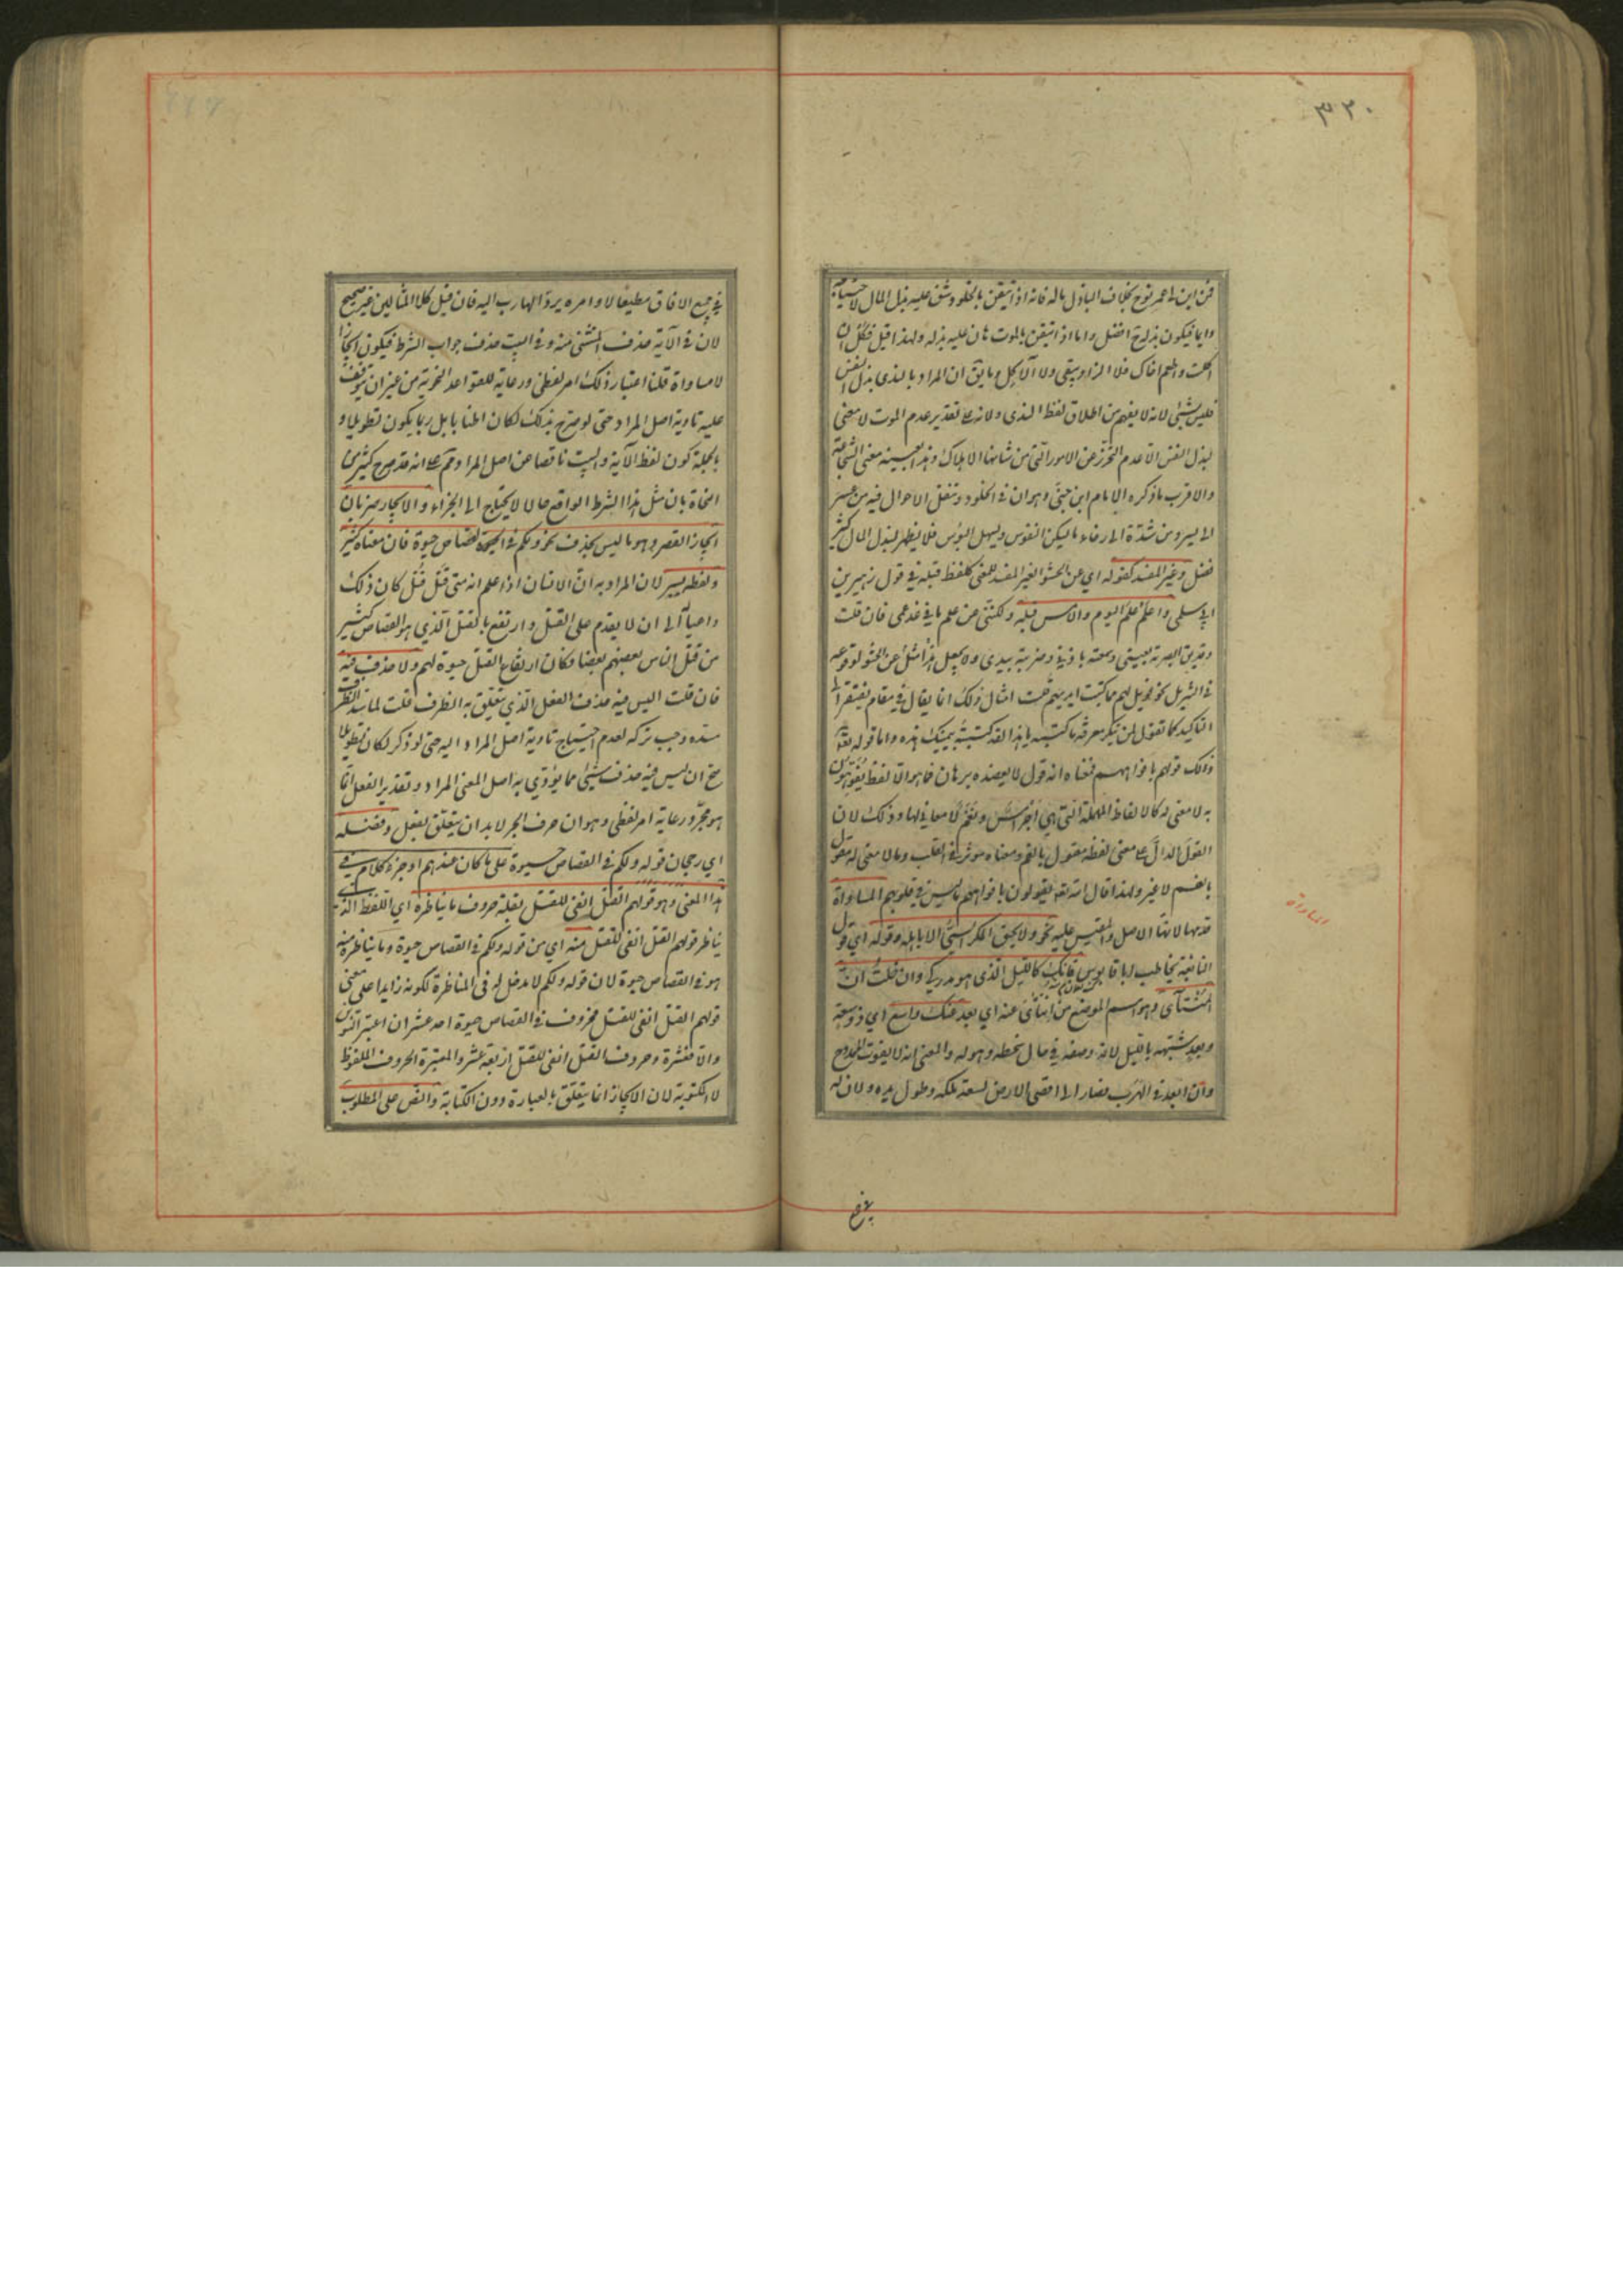 ٣٢٠
فمن اين له عمر نوح بخلاف الباذل ماله فانه اذا تيقن بالخلود وشق عليه بذل المال لاحتياجه
دايما فيكون بذله ح افضل واما اذا تيقن بالموت هان عليه بذله ولهذا قيل فكل ان
اكلت واطعم اخاك فلا الزاد يبقى ولا الآكل وما يق ان المراد بالندى بذل النفس
فليس بشئ لانه لا يفهم من اطلاق لفظ الندى ولانه على تقدير عدم الموت لا معنى
لبذل النفس الا عدم التحرز عن الامور التى من شانها الاهلاك وهذا بعينه معنى الشجاعة
والاقرب ما ذكره الامام ابن جنى وهو ان فى الخلود وتنقل الاحوال فيه من عسر
الى يسر ومن شدة الى رخاء ما يسكن النفوس ويسهل البؤس فلا يظهر لبذل المال كثير
فضل وغير المفسد كقوله اى عن الحشو الغير المفسد للمعنى كلفظ قبله فى قول زهير بن
ابى سلمى واعلم علم اليوم والامس قبله ولكننى عن علم ما فى غد عمى فان قلت
وقد يق ابصرته بعينى وسمعته باذنى وضربته بيدى ولا يجعل هذا مثل عن الحشو لوقوعه
فى التنزيل نحو فويل لهم مما كتبت ايديهم قلت امثال ذلك انما يقال فى مقام يفتقر الى
التأكيد كما تقول لمن ينكر معرفة ما كتبته يا هذا لقد كتبته بيمينك هذه واما قوله تعه
ذلك قولهم بافواههم فمعناه انه قول لا يعضده برهان فما هو الا لفظ يفوهون
به لا معنى له كالالفاظ المهملة التى هى اجراس ونغم لا معانى لها وذلك لان
القول الدال على معنى لفظه مقول بالفم ومعناه مؤثر فى القلب وما لا معنى له مقول
بالفم لا غير ولهذا قال الله تعه يقولون بافواههم ما ليس فى قلوبهم المساواة
قدمها لانها الاصل والمقيس عليه نحو ولا يحيق المكر السيئ الا باهله وقوله اى قول
النابغة يخاطب ابا قابوس فانك كالليل الذى هو مدركى وان خلت ان
المنتأى وهو اسم الموضع من انتأى عنه اى بعد عنك واسع اى ذو سعة
وبعد شبهه بالليل لانه وصفه فى حال سخطه وهوله والمعنى انه لا يفوت الممدوح
وان ابعد فى الهرب فصار الى اقصى الارض لسعة ملكه وطول يده ولان له
المساواة
فى جميع الافاق مطيعا لاوامره يرد الهارب اليه فان قيل كلا المثالين غير صحيح
لان فى الآية حذف المستثنى منه وفى البيت حذف جواب الشرط فيكون ايجازا
لا مساواة قلنا اعتبار ذلك امر لفظى ورعاية للقواعد النحوية من غير ان يتوقف
عليه تادية اصل المراد حتى لو صرح بذلك لكان اطنابا بل ربما يكون تطويلا و
بالجملة كون لفظ الآية والبيت ناقصا عن اصل المراد مم على انه قد صرح كثير من
النحاة بان مثل هذا الشرط الواقع حالا لا يحتاج الى الجزاء والايجاز ضربان
ايجاز القصر وهو ما ليس بحذف نحو ولكم فى القصاص حيوة فان معناه كثير
ولفظه يسير لان المراد به ان الانسان اذا علم انه متى قتل قتل كان ذلك
داعيا الى ان لا يقدم على القتل وارتفع بالقتل الذى هو القصاص كثير
من قتل الناس بعضهم بعضا وكان ارتفاع القتل حيوة لهم ولا حذف فيه
فان قلت اليس فيه حذف الفعل الذى يتعلق به الظرف قلت لما سد الظرف
مسده وجب تركه لعدم احتياج تادية اصل المراد اليه حتى لو ذكر لكان تطويلا
صح ان ليس فيه حذف شئ مما يؤدى به اصل المعنى المراد وتقدير الفعل انما
هو مجرد رعاية امر لفظى وهو ان حرف الجر لا بد ان يتعلق بفعل وفضله
اى رجحان قوله ولكم فى القصاص حيوة على ما كان عندهم اوجز كلام فى
هذا المعنى وهو قولهم القتل انفى للقتل بقلة حروف ما يناظره اى اللفظ الذى
يناظر قولهم القتل انفى للقتل منه اى من قوله ولكم فى القصاص حيوة وما يناظره منه
هو فى القصاص حيوة لان قوله ولكم لا مدخل له فى المناظرة لكونه زايدا على معنى
قولهم القتل انفى للقتل فحروف فى القصاص حيوة احد عشر ان اعتبر التنوين
والا فعشرة وحروف القتل انفى للقتل اربعة عشر والمعتبرة الحروف الملفوظة
لا المكتوبة لان الايجاز انما يتعلق بالعبارة دون الكتابة والنص على المطلوب